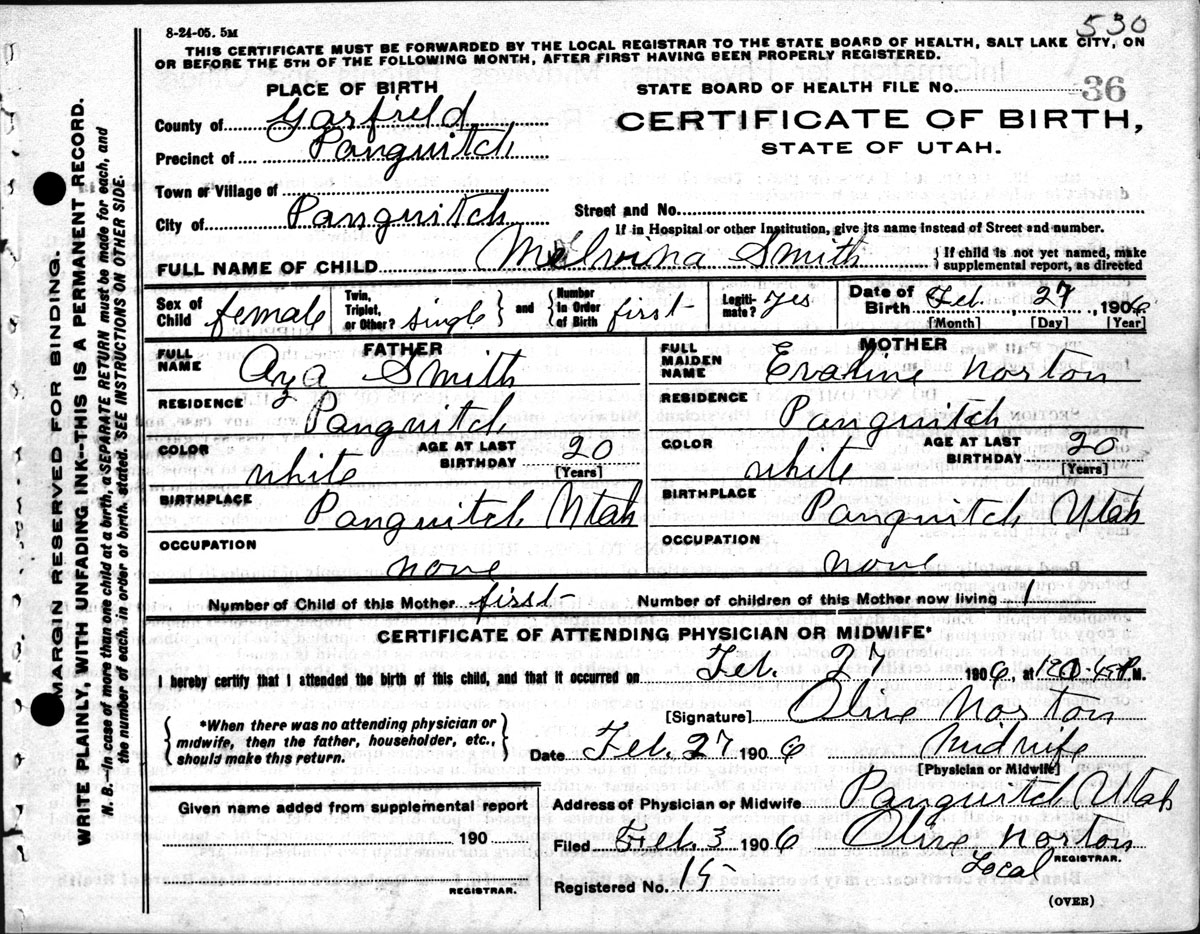 530
8-24-05. 5M
THIS CERTIFICATE MUST BE FORWARDED BY THE LOCAL REGISTRAR TO THE STATE BOARD OF HEALTH, SALT LAKE CITY, ON
OR BEFORE THE 5TH OF THE FOLLOWING MONTH, AFTER FIRST HAVING BEEN PROPERLY REGISTERED.
PLACE OF BIRTH
STATE BOARD OF HEALTH FILE No. 36
County of Garfield
CERTIFICATE OF BIRTH,
Precinct of Panguitch
STATE OF UTAH.
Town or Village of
City of Panguitch
Street and No.
If in Hospital or other Institution, give its name instead of Street and number.
FULL NAME OF CHILD Melvina Smith
{ If child is not yet named, make
supplemental report, as directed
Sex of Child female
Twin, Triplet, or Other? single } and { Number in Order of Birth first
Legitimate? yes
Date of Birth Feb. 27, 1906
[Month] [Day] [Year]
FATHER
FULL NAME Smith
RESIDENCE Panguitch
COLOR white
AGE AT LAST BIRTHDAY 20
[Years]
BIRTHPLACE Panguitch Utah
OCCUPATION none
MOTHER
FULL MAIDEN NAME Norton
RESIDENCE Panguitch
COLOR white
AGE AT LAST BIRTHDAY 20
[Years]
BIRTHPLACE Panguitch Utah
OCCUPATION none
Number of Child of this Mother first
Number of children of this Mother now living 1
CERTIFICATE OF ATTENDING PHYSICIAN OR MIDWIFE*
I hereby certify that I attended the birth of this child, and that it occurred on Feb. 27 1906, at M.
{ *When there was no attending physician or
midwife, then the father, householder, etc.,
should make this return. }
[Signature] Olive Norton
Date Feb. 27 1906 Midwife
[Physician or Midwife]
Given name added from supplemental report
190
REGISTRAR.
Address of Physician or Midwife Panguitch Utah
Filed Feb. 3 1906 Olive Norton
Local REGISTRAR.
Registered No. 15
(OVER)
MARGIN RESERVED FOR BINDING.
WRITE PLAINLY, WITH UNFADING INK--THIS IS A PERMANENT RECORD.
N. B.--In case of more than one child at a birth, a SEPARATE RETURN must be made for each, and
the number of each, in order of birth, stated. SEE INSTRUCTIONS ON OTHER SIDE.